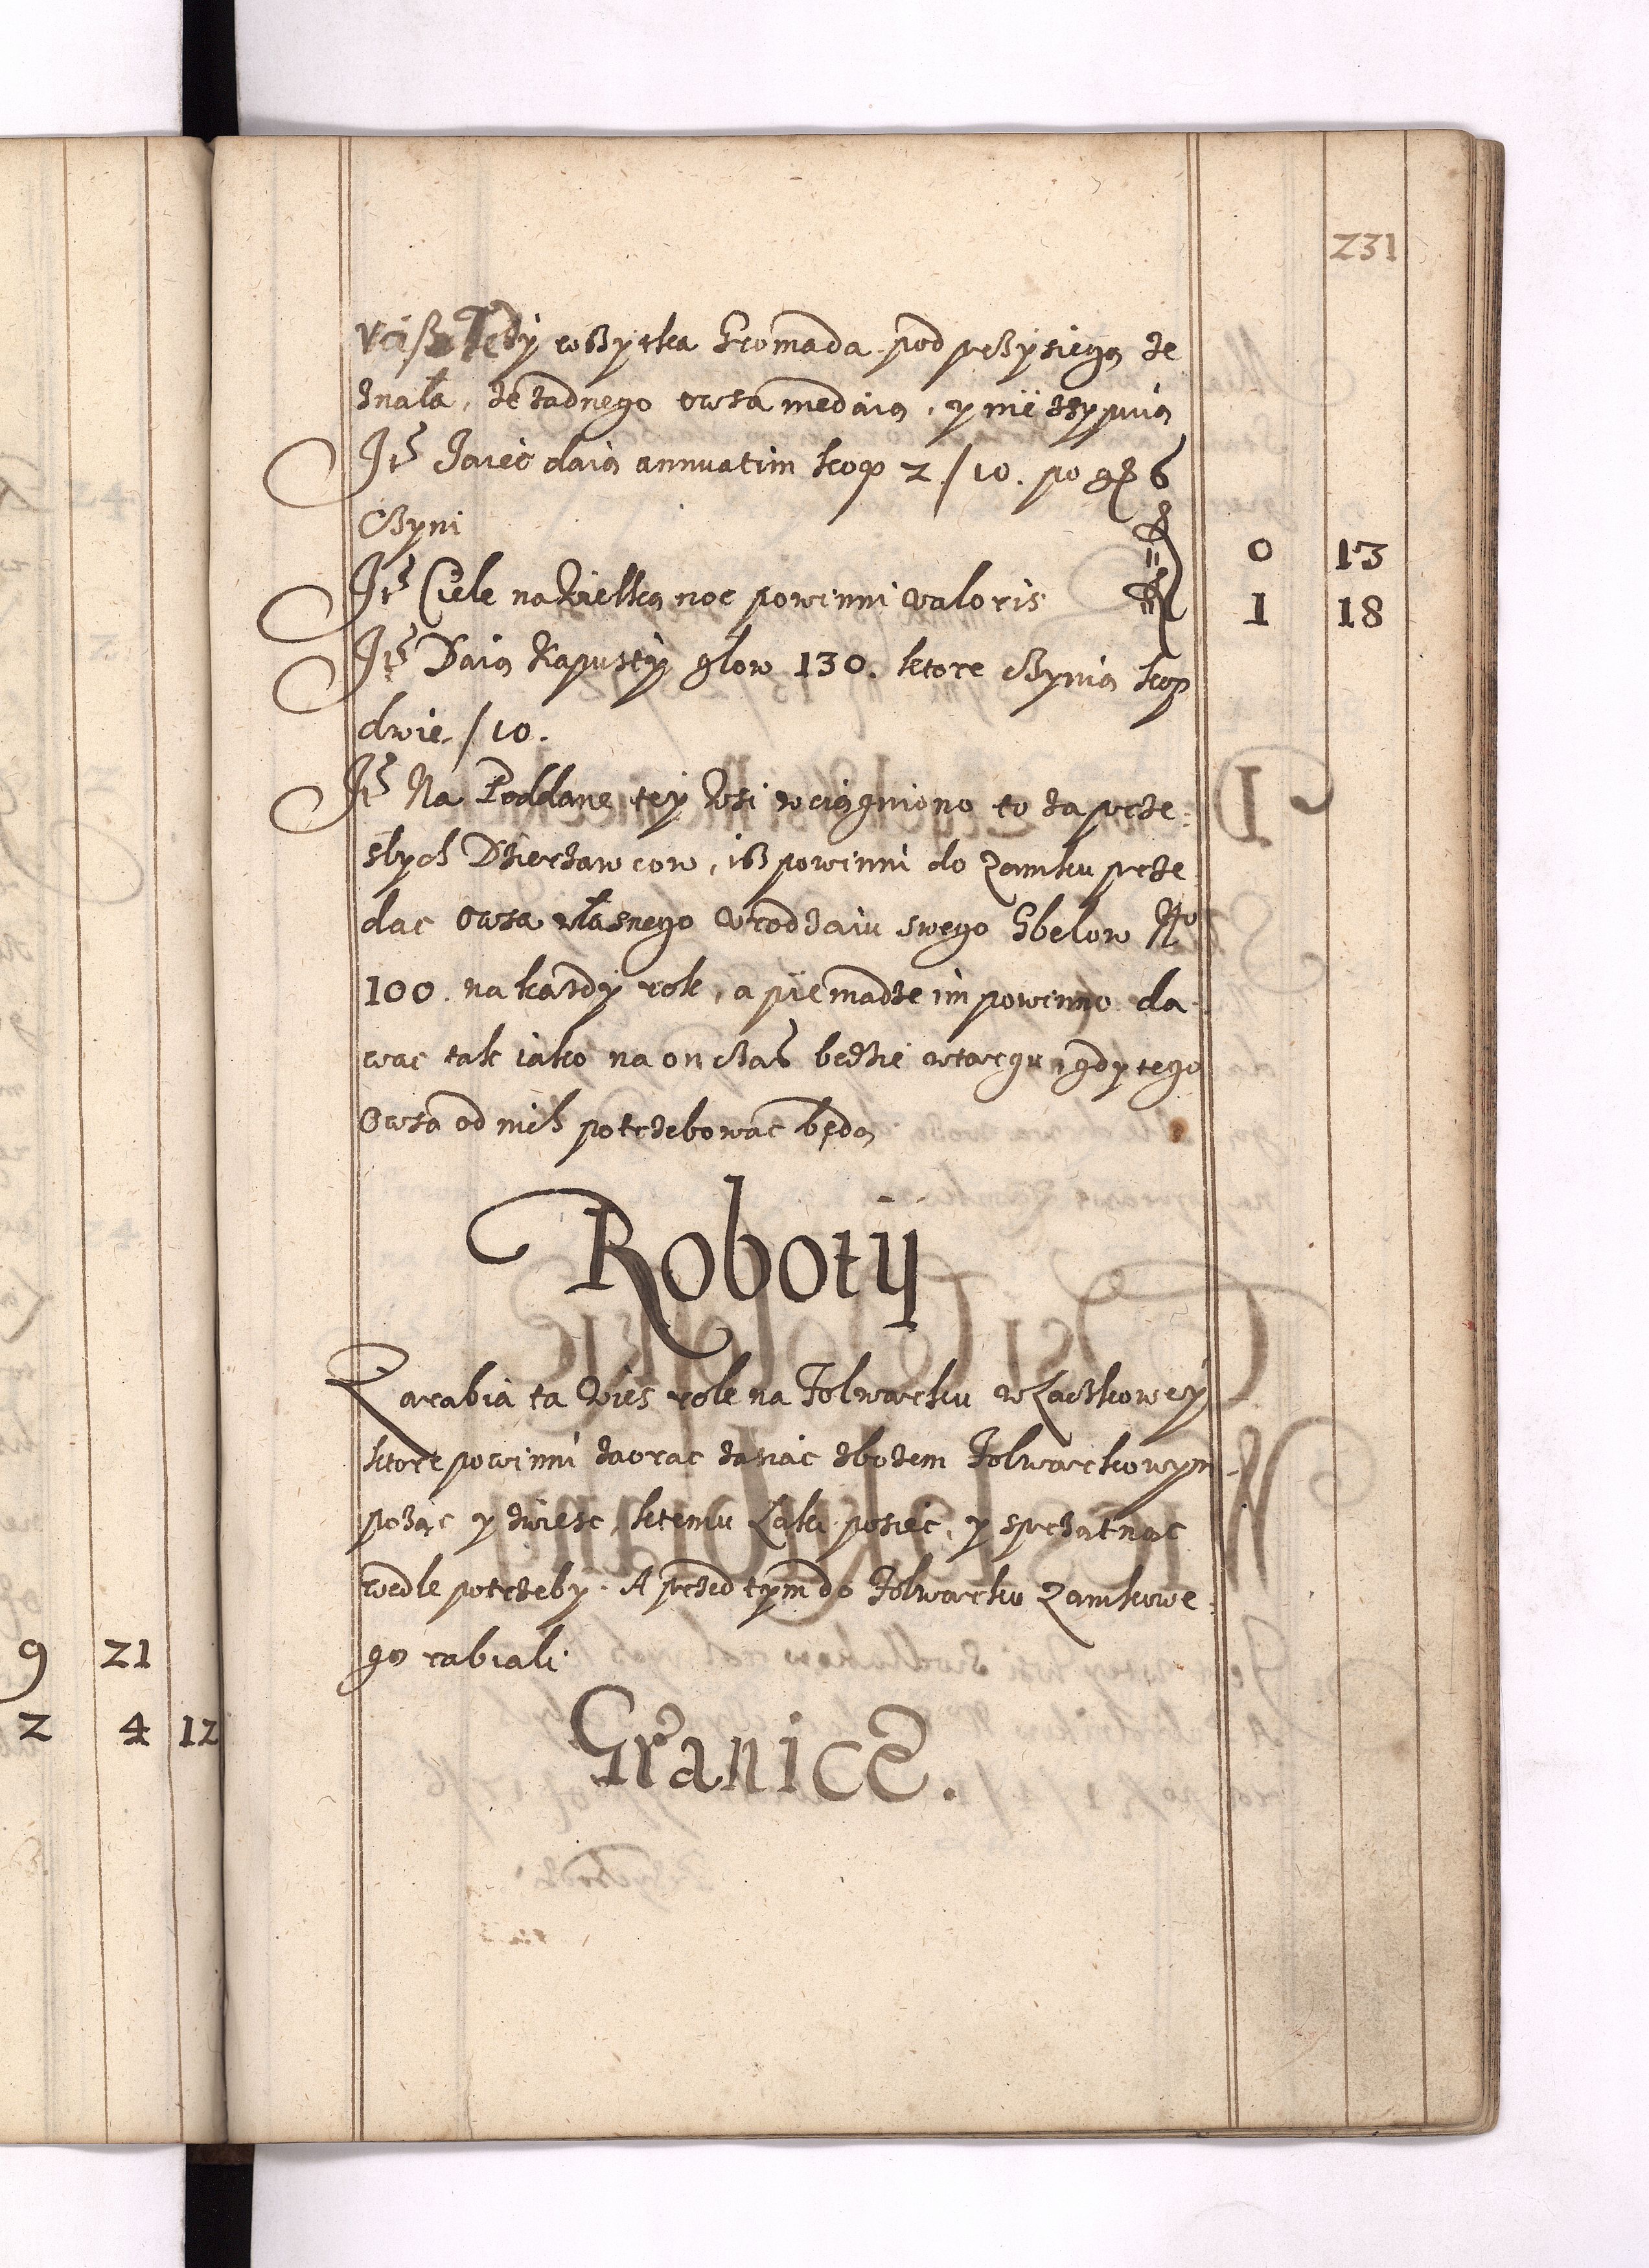 231
tedy wszytka Gromada pod przysięgą ze
znała, że żadnego owsa niedaią, y nie zsypuią
Itm Jaiec daią annuatim kop 2 /10. po gß 6
Czyni 0 13
Itm Ciele na Wielką noc powinni valoris 1 18
Itm Daią Kapusty glow 130. ktore czynią kop
dwie /10.
Itm Na Poddane tey Wsi wciągniono to za prze=
słych Dzierżawcow, isz powinni do Zamku prze
dac Owsa własnego Vrodzaiu swego Gbelow No
100. na każdy rok, a pieniadze im powinno da
wac tak iako na on czas będzie wtargu, gdy tego
Owsa od nich potrzebowac będą
Roboty
Zarabia ta Wies role na Folwarku w Laczkowey
ktore powinni zaorac zasiac zbożem Folwarkowym
pożąc y zwiesc, ktemu Łąki posiec, y sprzątnąc
wedle potrzeby. A przed tym do Folwarku Zamkowe
go rabiali
Granice.
9 21
2 4 12